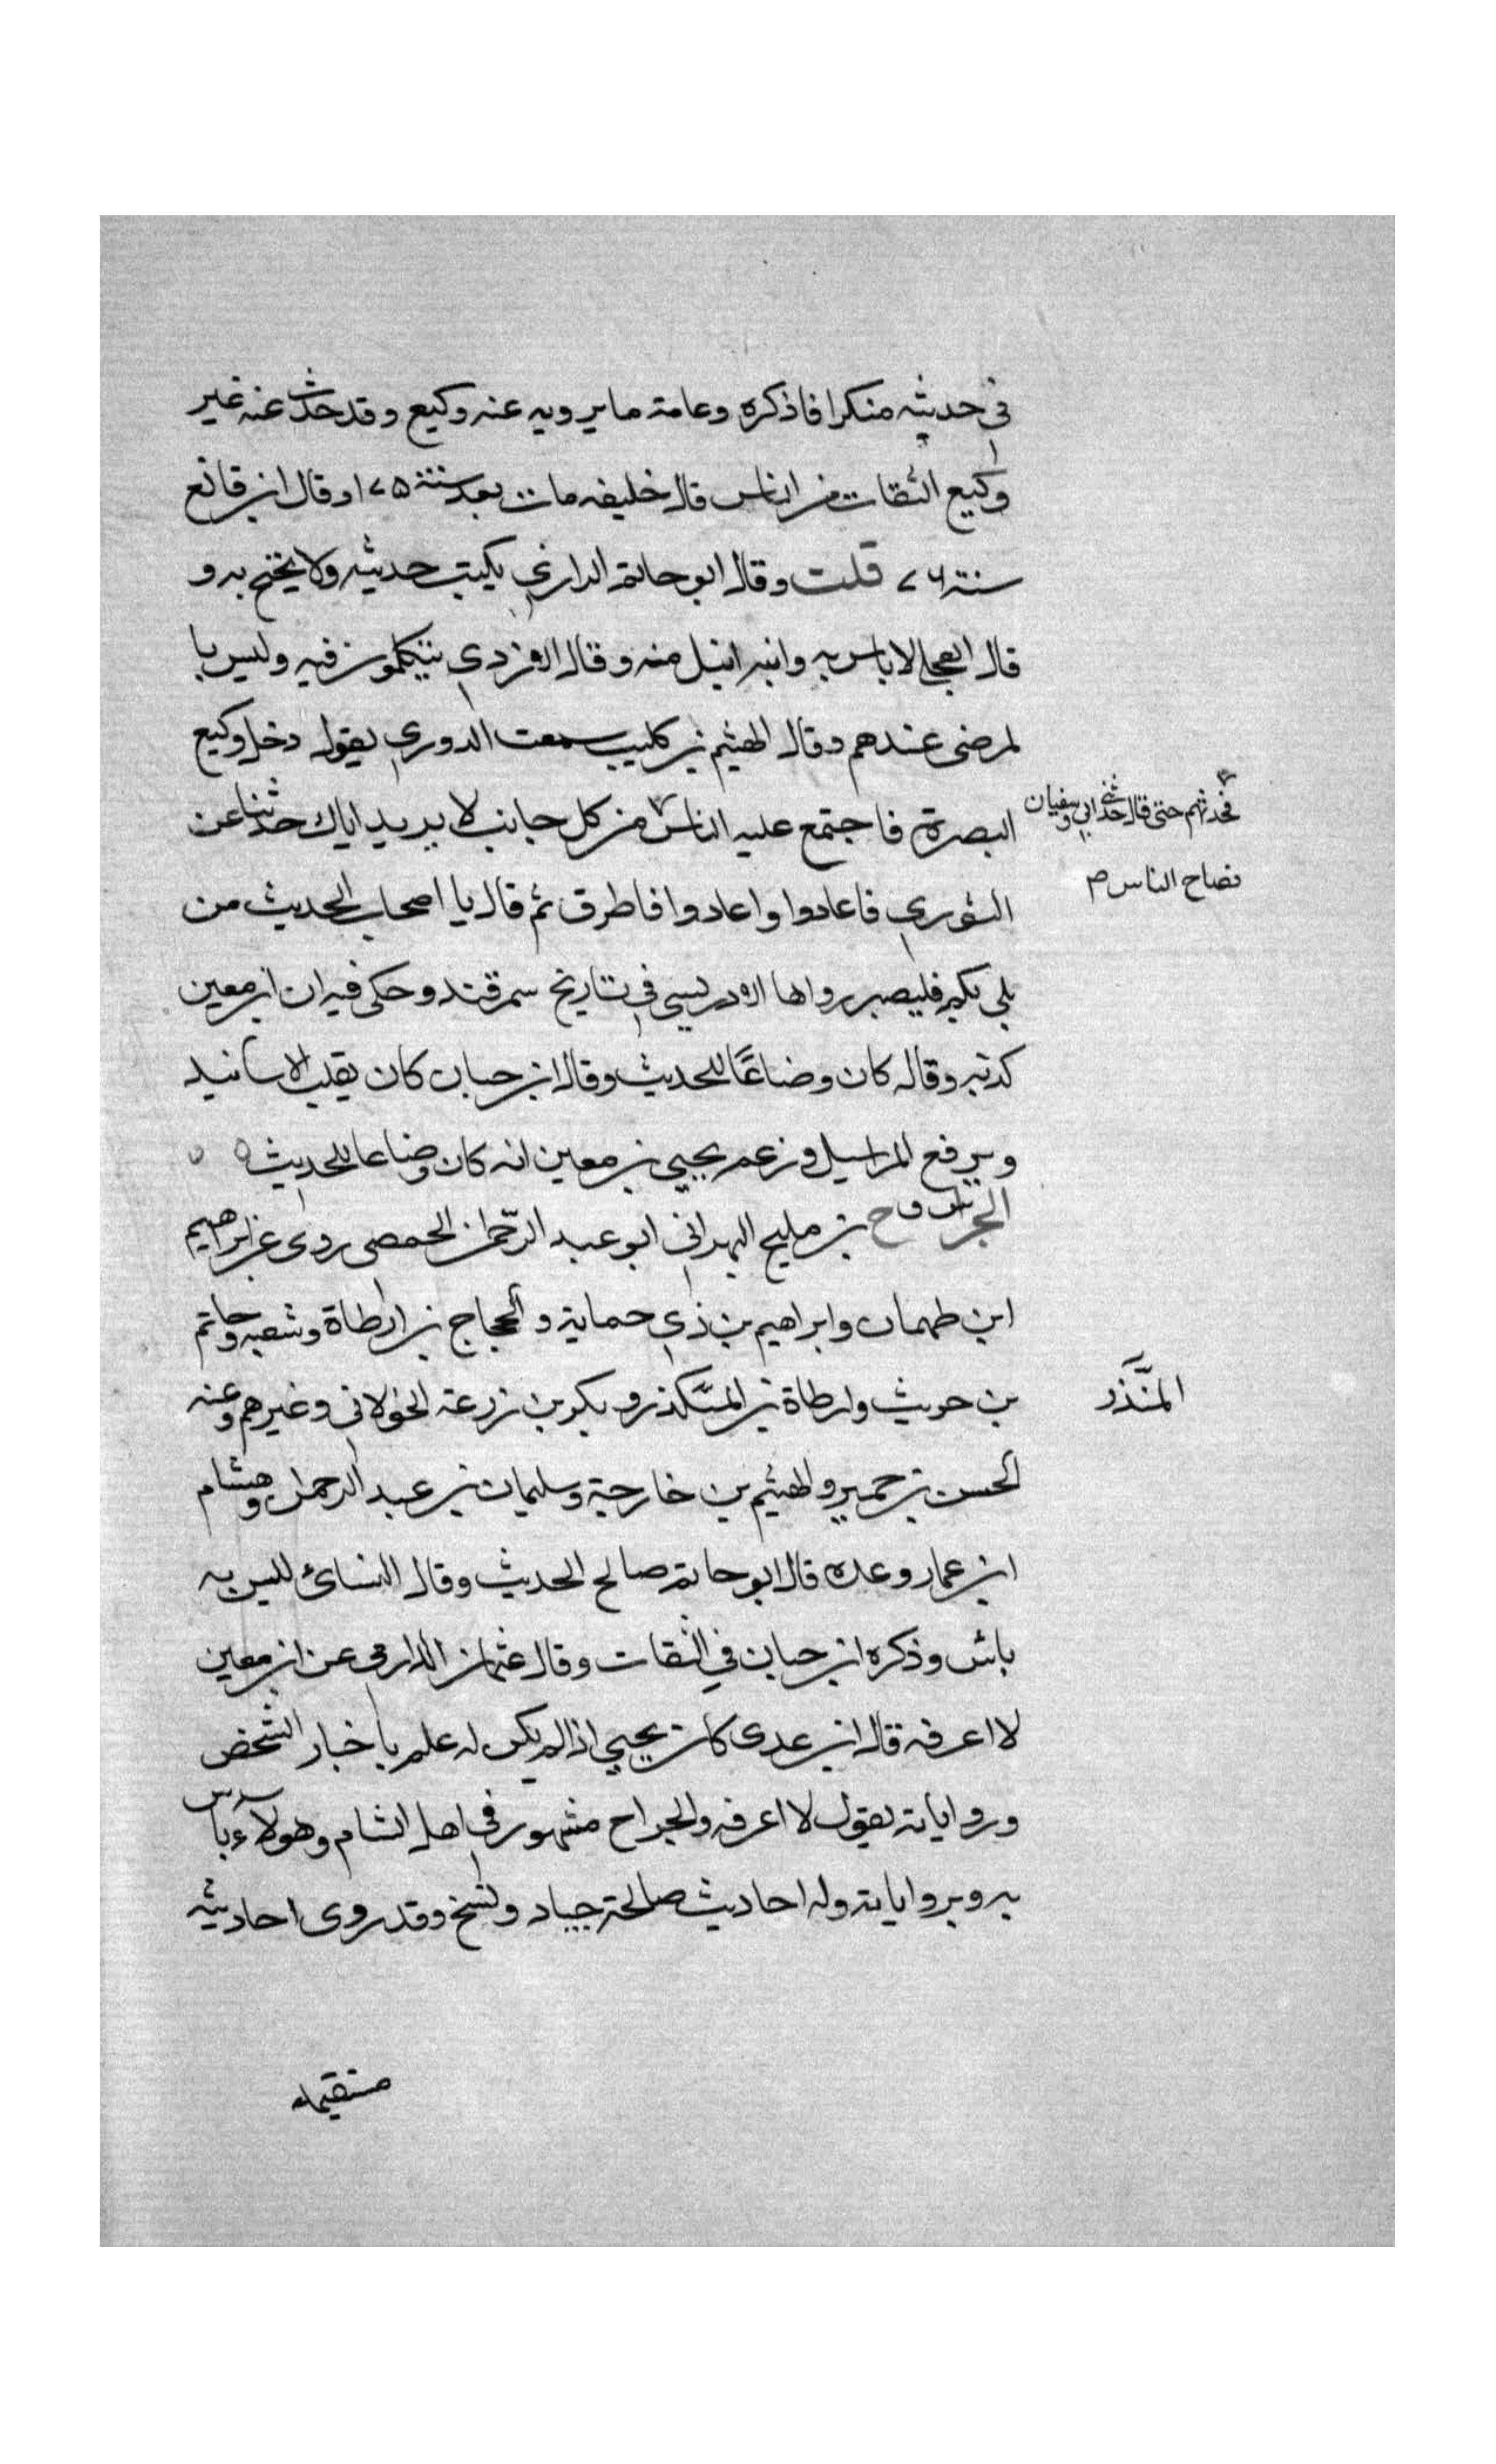 في حديثه منكرا فاذكره وعامة ما يرويه عنه وكيع وقد حدث عنه غير
وكيع الثقات من الناس قال خليفه مات بعد سنة ١٧٥ وقال ابن قانع
سنة ٧٦ قلت وقال ابو حاتم الرازي يكتب حديثه ولا يحتج به و
قال العجلي لا باس به وابنه انبل منه وقال الازدي يتكلمون فيه وليس با
لمرضى عندهم وقال الهيثم بن كليب سمعت الدوري يقول دخل وكيع
البصرة فاجتمع عليه الناس من كل جانب لا يريد اياك حدثنا عن
فحدثهم حتى قال حدثني ابي وسفيان
فصاح الناس م
الثوري فاعادوا واعادوا فاطرق ثم قال يا اصحاب الحديث من
بلي بكم فليصبر رواها الادريسي في تاريخ سمرقند وحكى فيه ان ابن معين
كذبه وقال كان وضاعًا للحديث وقال ابن حبان كان يقلب الاسانيد
ويرفع المراسيل وزعم يحيي بن معين انه كان وضاعا للحديث
الجراح بن مليح البهراني ابو عبد الرحمن الحمصي روى عن ابراهيم
ابن طهمان وابراهيم بن ذي حماية والحجاج بن ارطاة وشعبه وحاتم
بن حريث وارطاة بن المنذر وبكر بن زرعة الخولاني وغيرهم وعنه
المنَّذر
الحسن بن خمير والهيثم بن خارجة وسليمان بن عبد الرحمن وهشام
ابن عمار وعدة قال ابو حاتم صالح الحديث وقال النسائ ليس به
باس وذكره ابن حبان في الثقات وقال عثمان الدارمي عن ابن معين
لا اعرفه قال ابن عدى كان يحيي اذا لم يكن له علم باخبار الشخص
ورواياته يقول لا اعرفه والجراح مشهور في اهل الشام وهو لا باس
به وبرواياته وله احاديث صالحة جياد ونسخ وقد روى احاديثه
مستقيمه